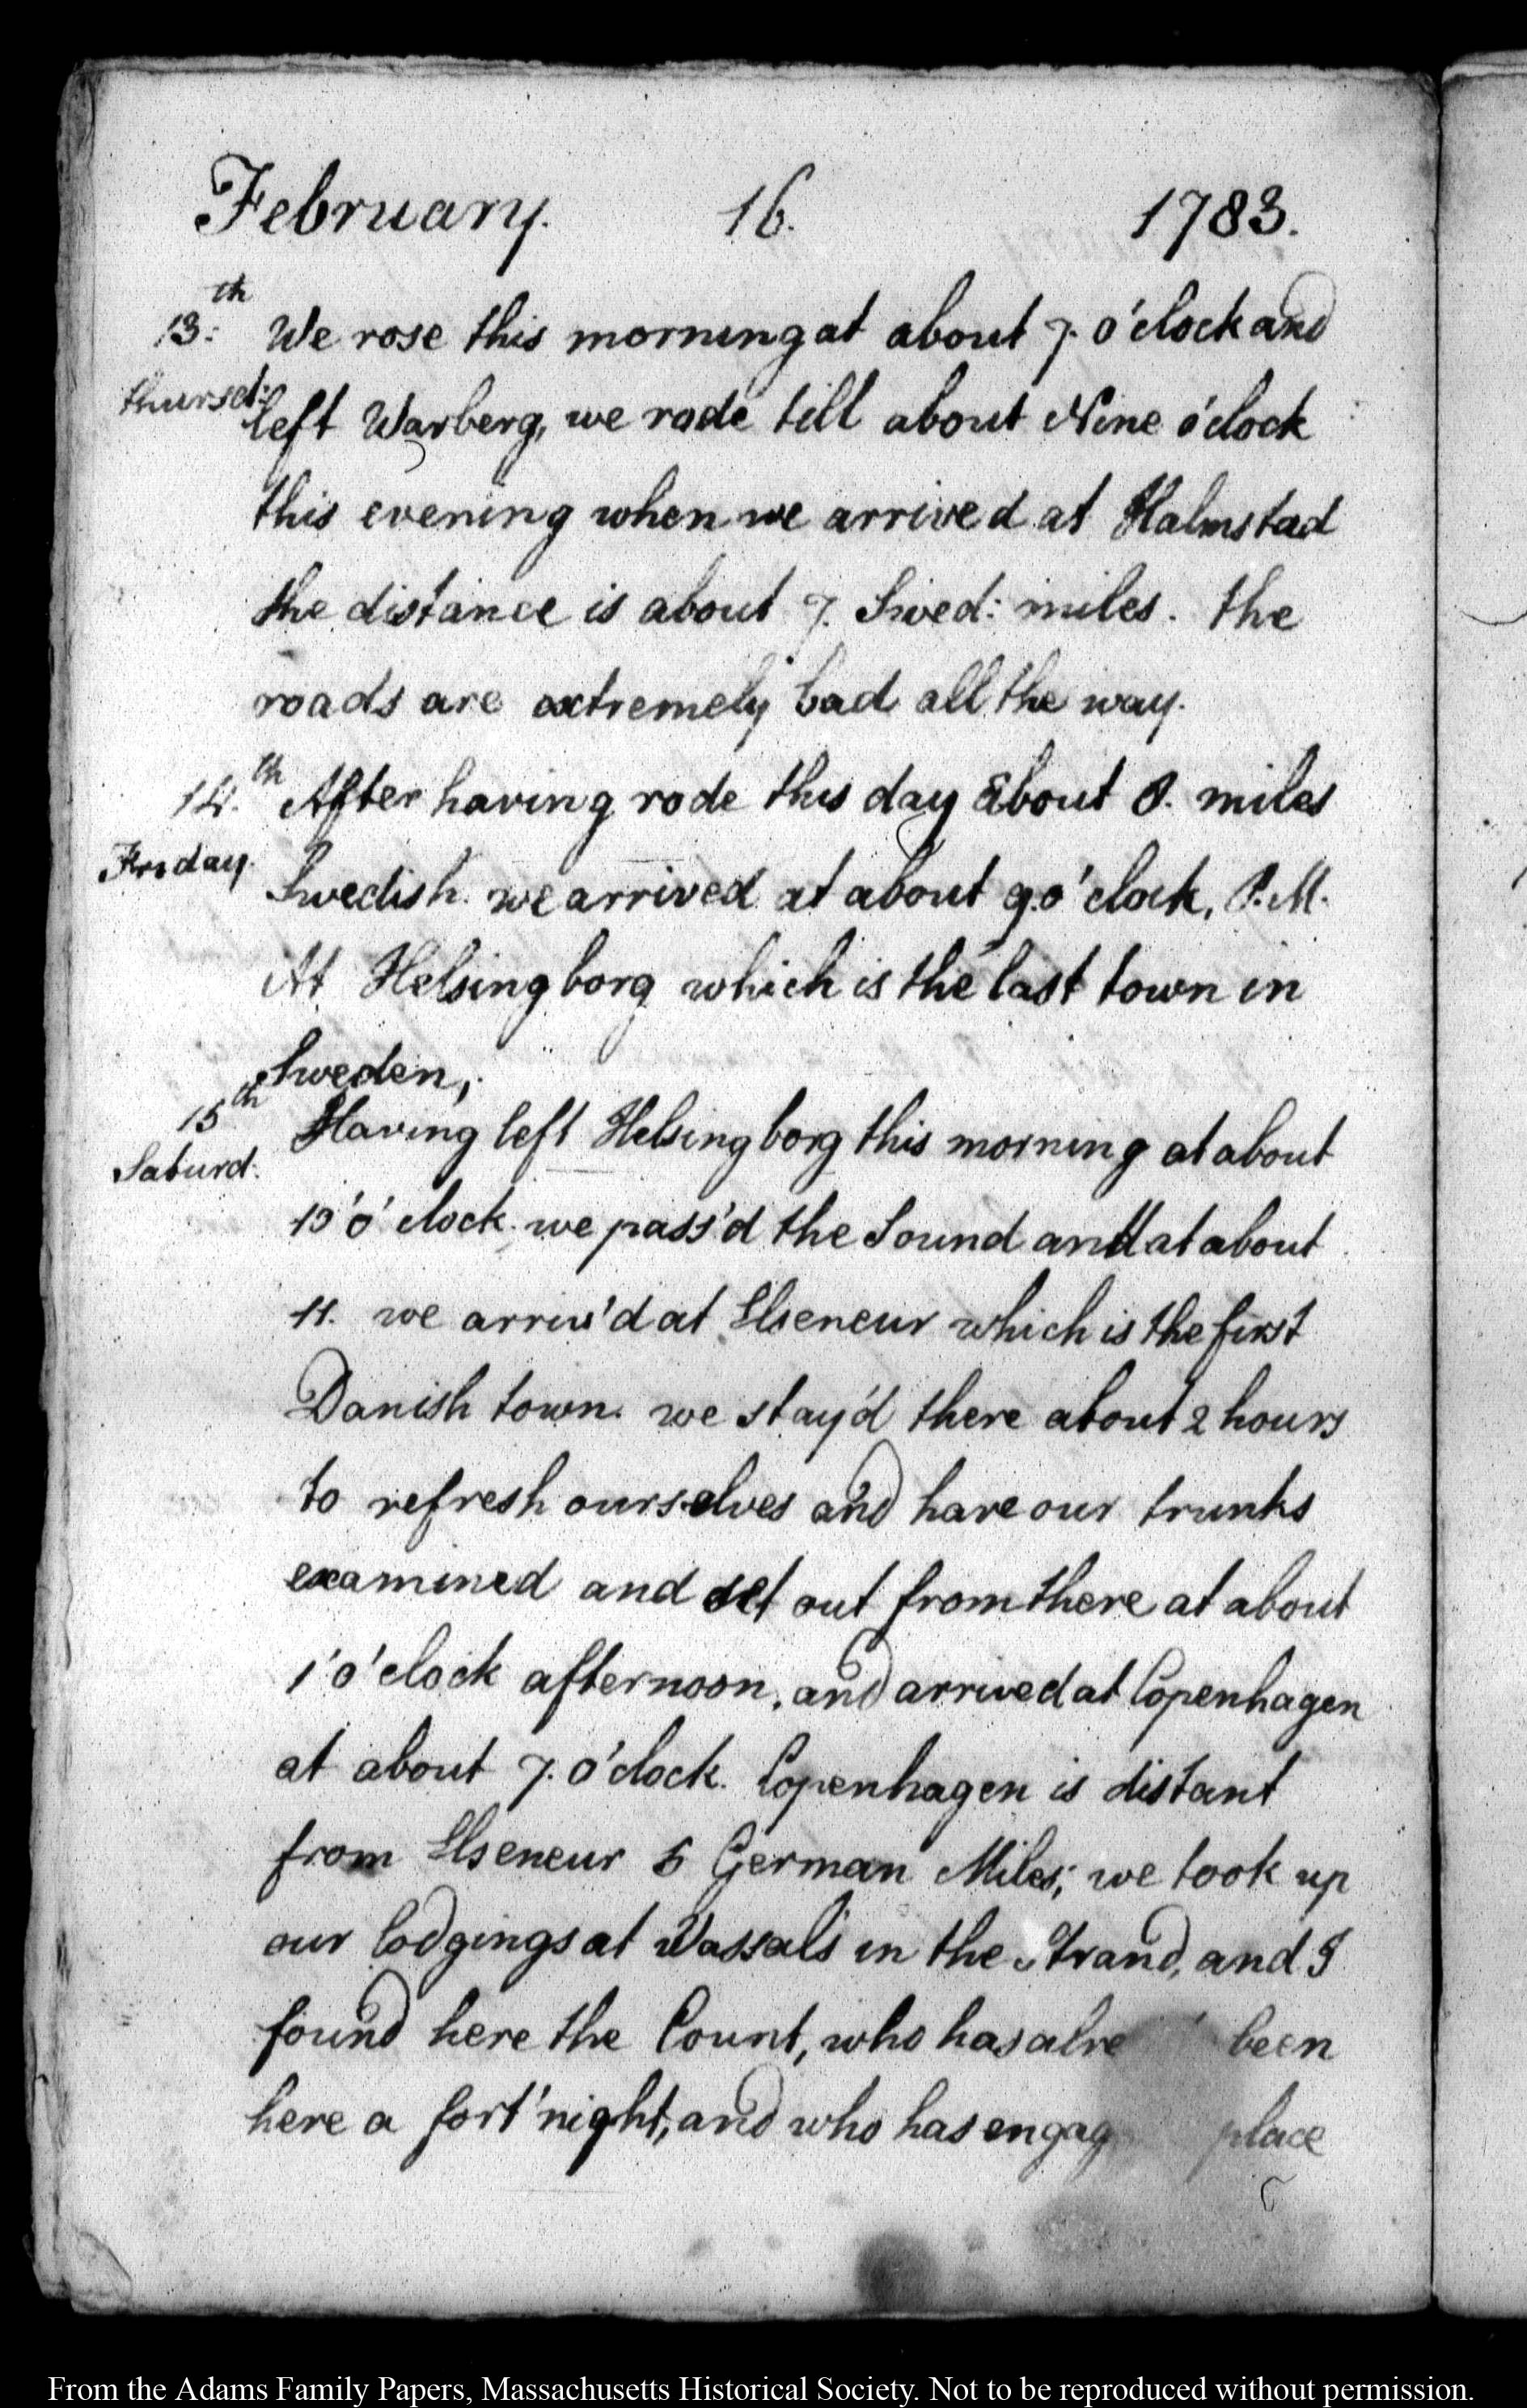 February. 16. 1783.
13.th We rose this morning at about 7. o'clock and
thursd: left Warberg, we rode till about Nine o'clock
this evening when we arrived at Halmstad
the distance is about 7. Swed: miles. the
roads are extremely bad all the way.
14.th After having rode this day about 8. miles
Friday. Swedish. we arrived at about 9. o'clock, P.M.
At Helsingborg which is the last town in
Sweden,
15th Having left Helsingborg this morning at about
Saturd: 10 o'clock. we pass'd the Sound and at about
11. we arriv'd at Elseneur which is the first
Danish town. we stay'd there about 2 hours
to refresh ourselves and have our trunks
examined and set out from there at about
1 o'clock afternoon, and arrived at Copenhagen
at about 7. o'clock. Copenhagen is distant
from Elseneur 5 German Miles; we took up
our lodgings at Vassals in the Strand, and I
found here the Count, who has alre been
here a fort'night, and who has engag place
From the Adams Family Papers, Massachusetts Historical Society. Not to be reproduced without permission.